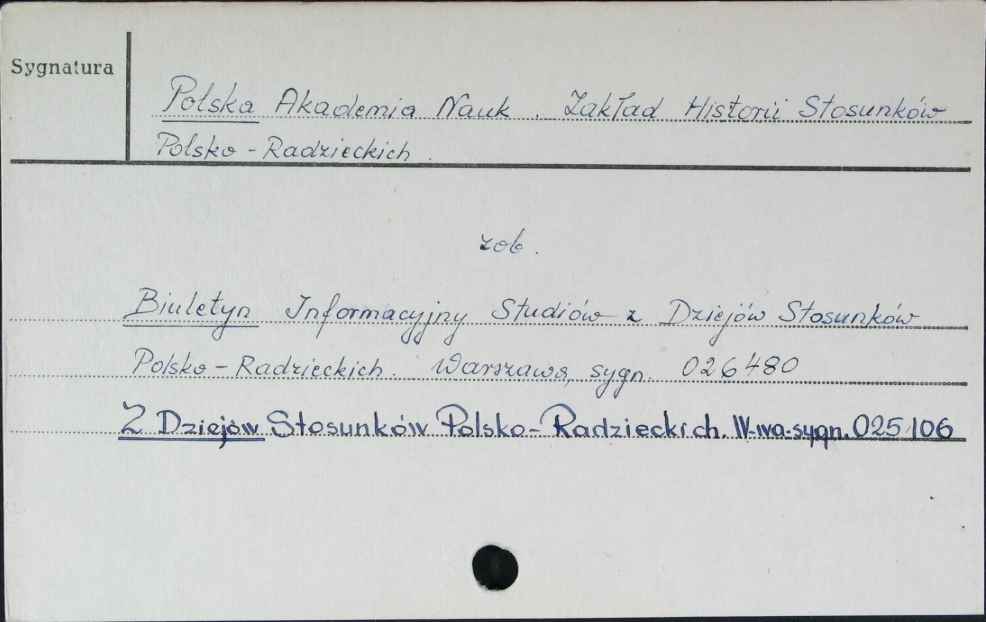 Sygnatura
Polska Akademia Nauk. Zakład Historii Stosunków
Polsko-Radzieckich.
zob.
Biuletyn Informacyjny Studiów z Dziejów Stosunków
Polsko-Radzieckich. Warszawa, sygn. 026480
Z Dziejów Stosunków Polsko-Radzieckich. W-wa-sygn. 025106